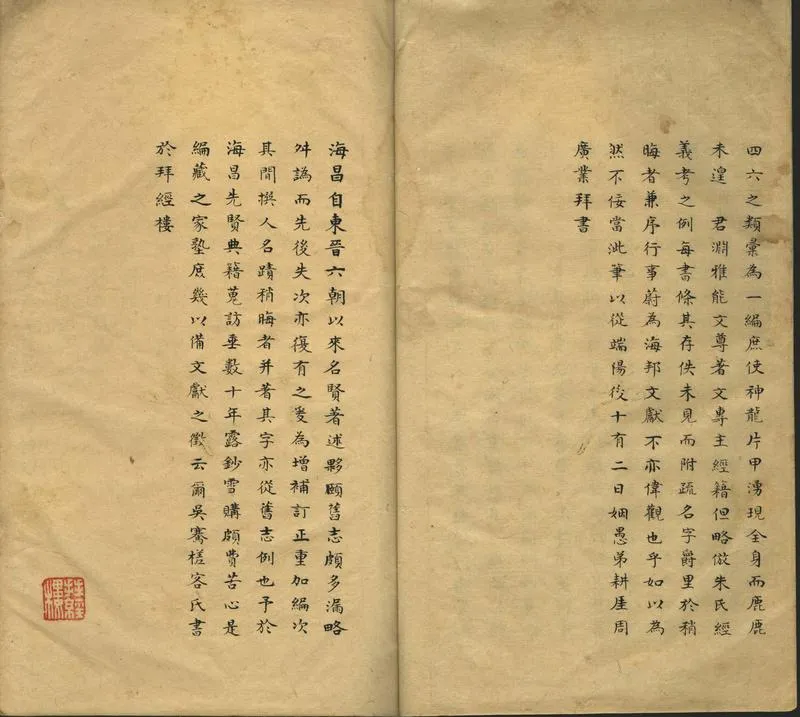 四六之類彙為一編庶使神龍片甲湧現全身而鹿鹿
未遑　君淵雅能文尊著文專主經籍但略倣朱氏經
義考之例每書條其存佚未見而附疏名字爵里於稍
晦者兼序行事蔚為海邦文獻不亦偉觀也乎如以為
然不佞當泚筆以從端陽後十有二日姻愚弟耕厓周
廣業拜書
海昌自東晉六朝以來名賢著述夥頤舊志頗多漏略
舛譌而先後失次亦復有之爰為增補訂正重加編次
其間撰人名蹟稍晦者并著其字亦從舊志例也予於
海昌先賢典籍蒐訪垂數十年露鈔雪購頗費苦心是
編藏之家塾庶幾以備文獻之徵云爾吳騫槎客氏書
於拜經樓